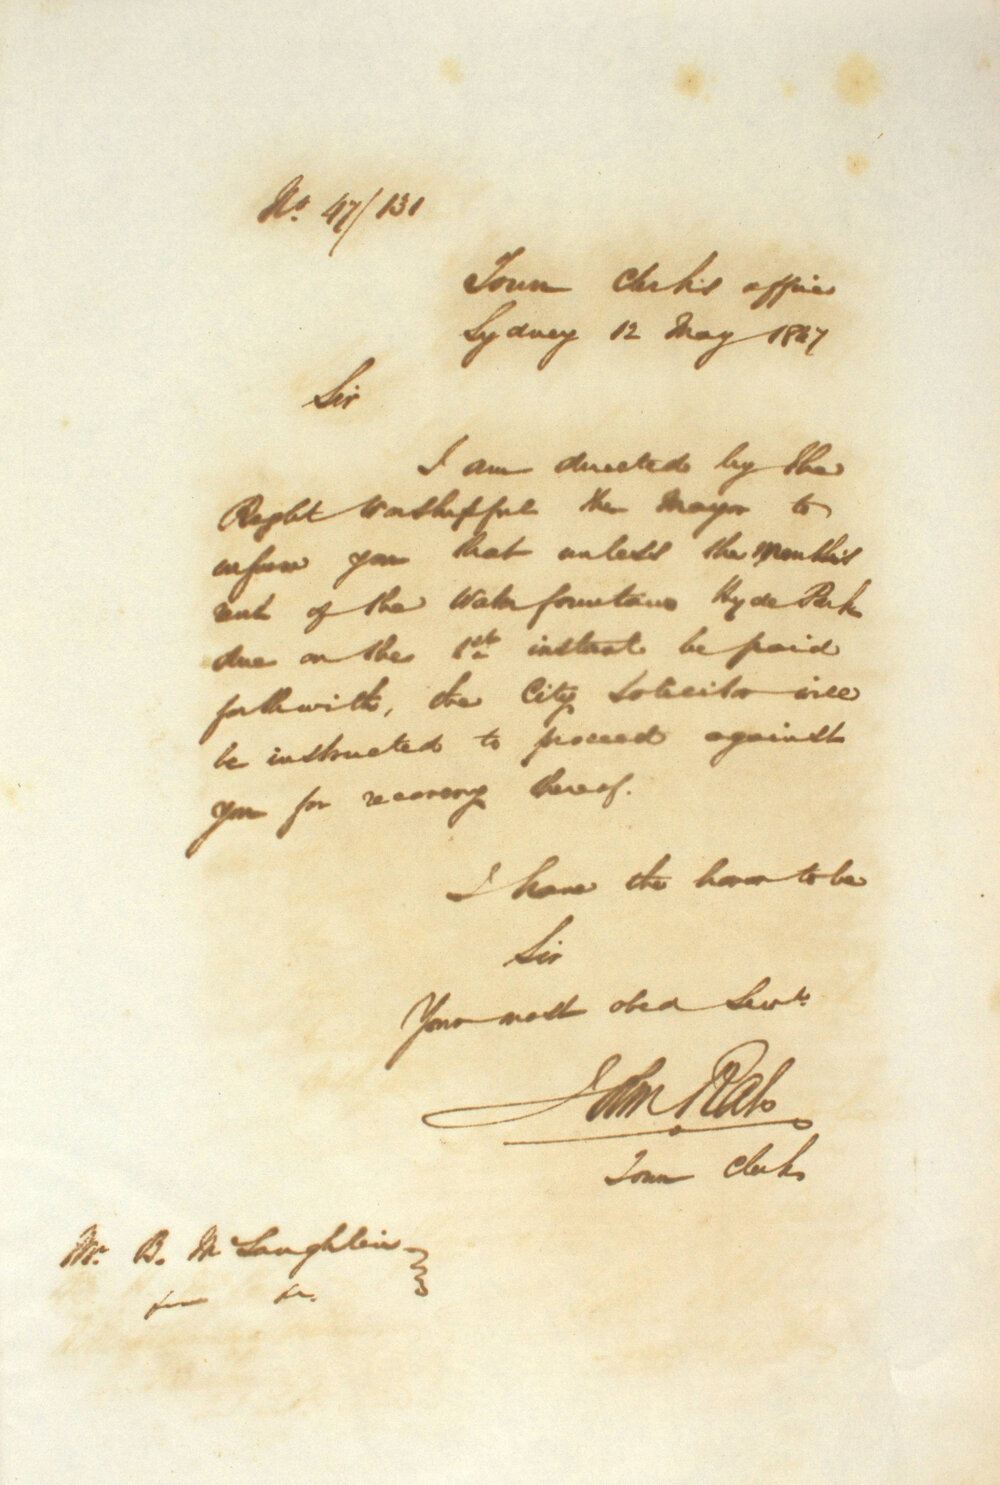 No. 47/131
Town Clerk's office
Sydney 12 May 1847
Sir
I am directed by the
Right Worshipful the Mayor to
inform you that unless the Month's
rent of the Water fountains Hyde Park
due on the 1st instant be paid
forthwith, the City Solicitor will
be instructed to proceed against
you for recovery thereof.
I have the honor to be
Sir
Your most obed Servt.
John Rae
Town Clerk
Mr. B. McLaughlin